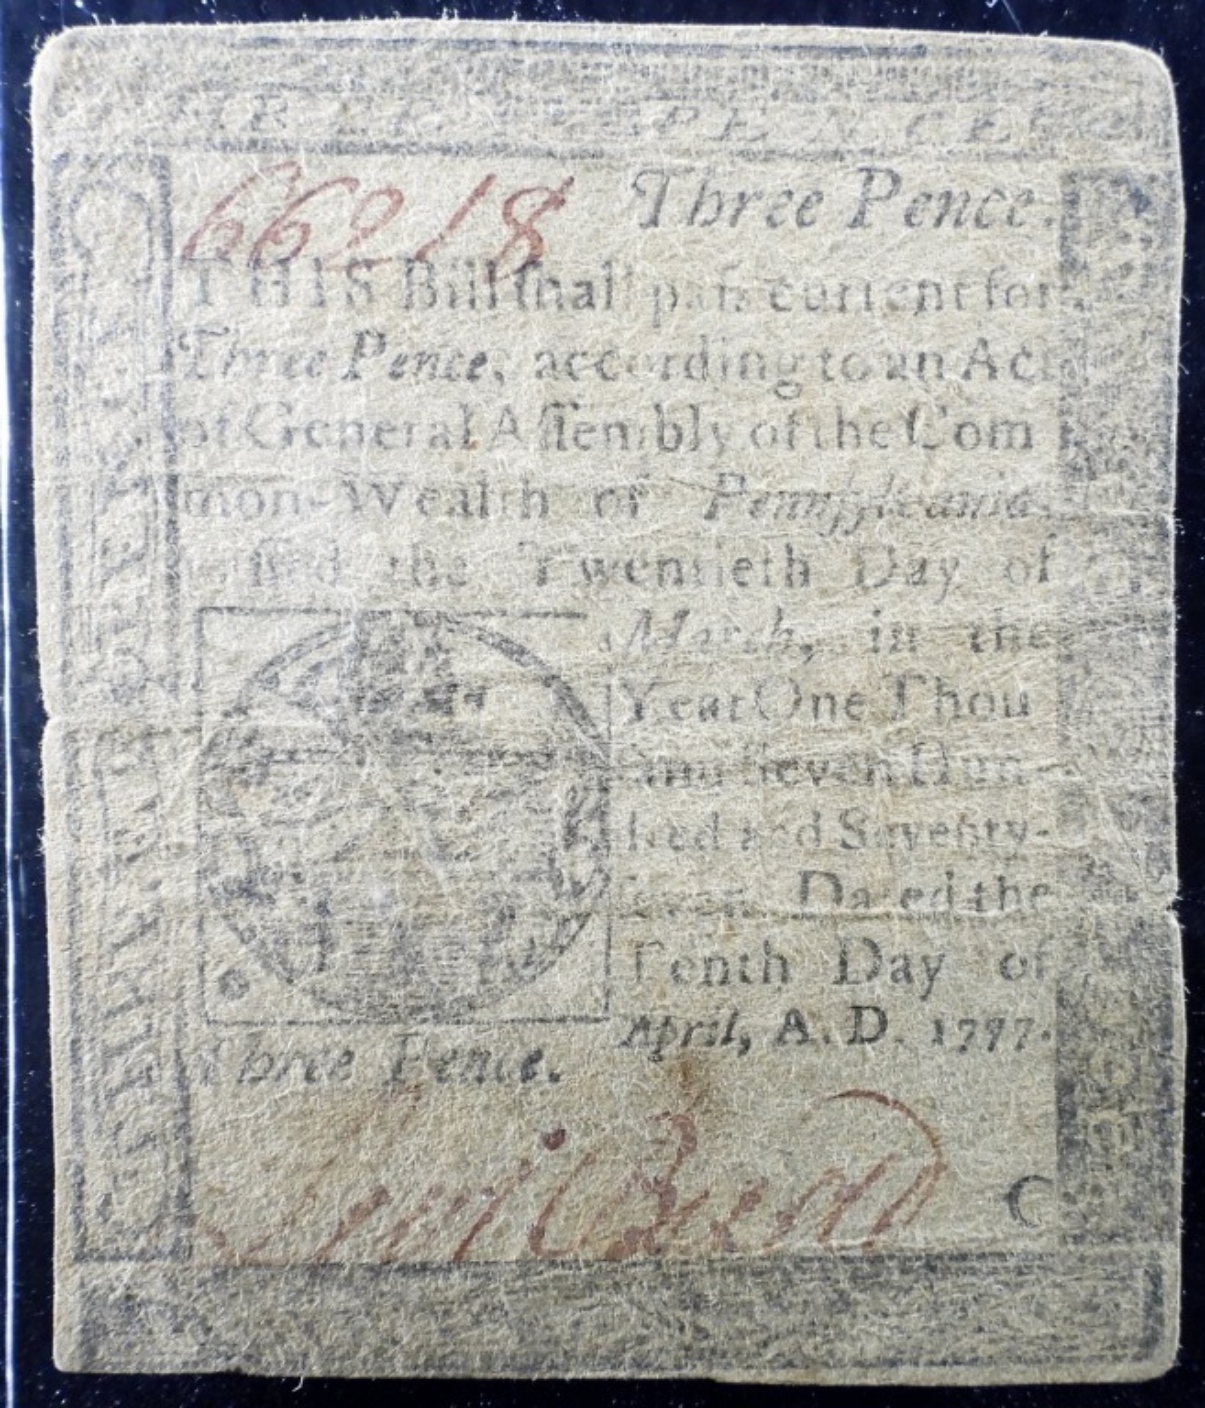 THREE PENCE
66218 Three Pence.
THIS Bill ſhall paſs current for
Three Pence, according to an Act
of General Aſſembly of the Com
mon-Wealth of Pennſylvania,
the Twentieth Day of
March, in the
Year One Thou
ſand Seven Hun-
dred and Seventy-
ſeven. Dated the
Tenth Day of
April, A. D. 1777.
Three Pence.
C